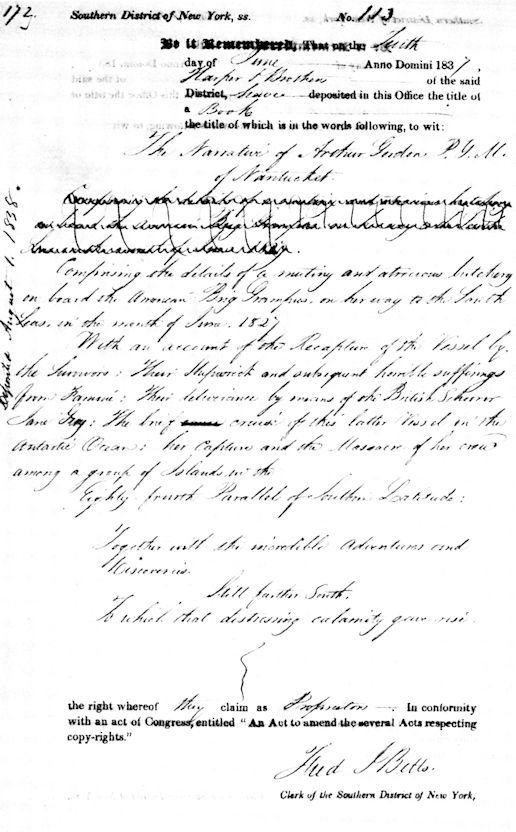 172
Southern District of New York, ss. No. 113
Be it Remembered, That on the Tenth
day of June Anno Domini 1837,
Harper & Brothers of the said
District, have deposited in this Office the title of
a Book
the title of which is in the words following, to wit:
The Narrative of Arthur Gordon P.Y.M.
of Nantucket
on board the American Brig Grampus on her way
Comprising the details of a mutiny and atrocious butchery
on board the American Brig Grampus, on her way to the South
Seas, in the month of June, 1827
With an account of the Recapture of the Vessel by
the Survivors: Their Shipwreck and subsequent horrible sufferings
from Famine: Their deliverance by means of the British Schooner
Jane Guy: The brief cruise of this latter Vessel in the
Antartic Ocean: her Capture and the Massacre of her crew
among a group of Islands in the
Eighty fourth Parallel of Southern Latitude:
Together with the incredible Adventures and
Discoveries
Still farther South,
To which that distressing calamity gave rise
the right whereof they claim as Proprietors. In conformity
with an act of Congress, entitled "An Act to amend the several Acts respecting
copy-rights."
Fred J Betts.
Clerk of the Southern District of New York,
Deposited August 1. 1838.